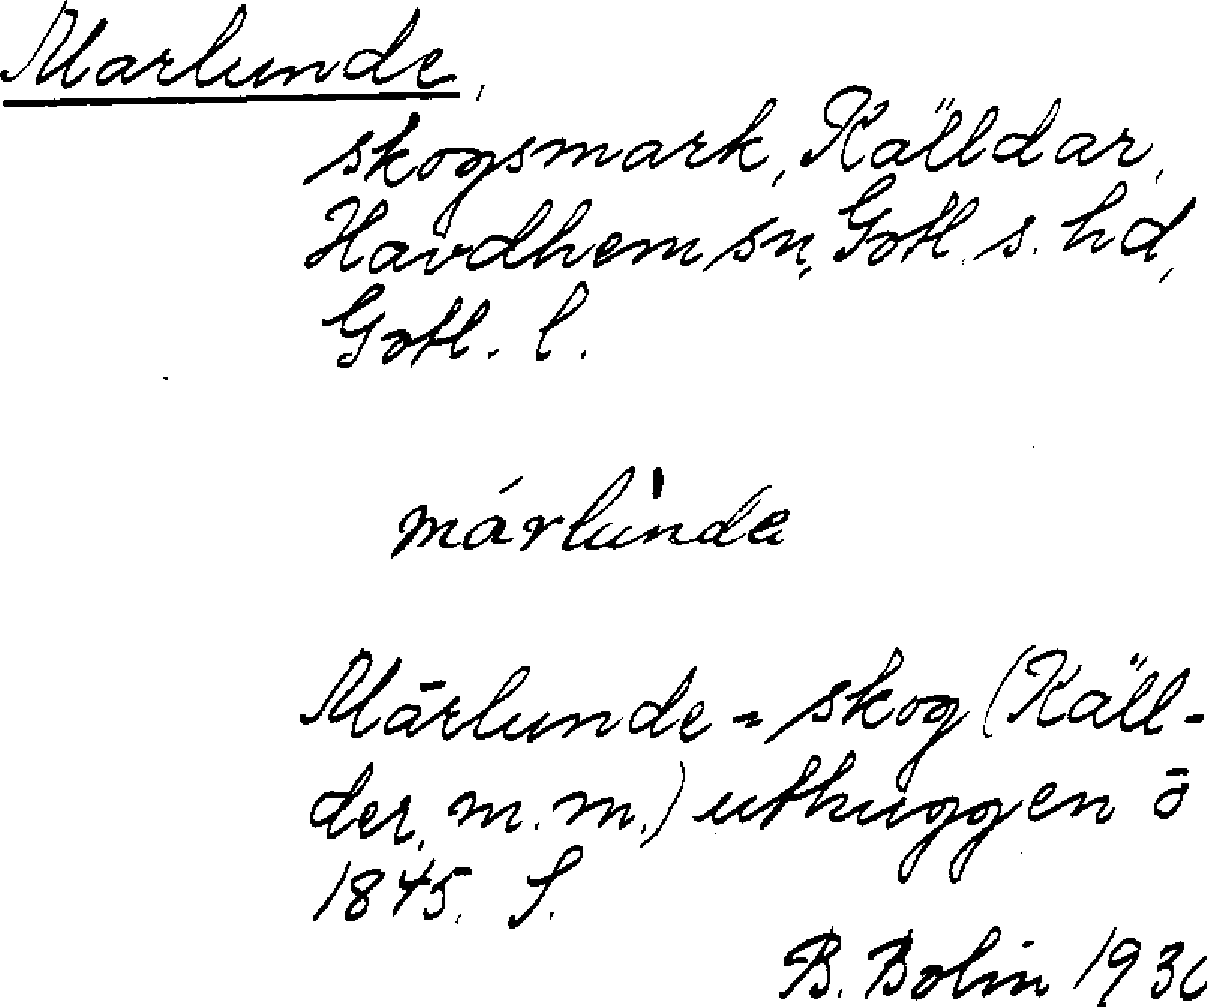 Marlunde,
skogsmark, Källdar,
Havdhem sn, Gotl. s. hd,
Gotl. l.
márlúnda
Mārlunde = skog (Käll-
der, m.m.) uthuggen ō
1845. S.
B. Bolin 1930